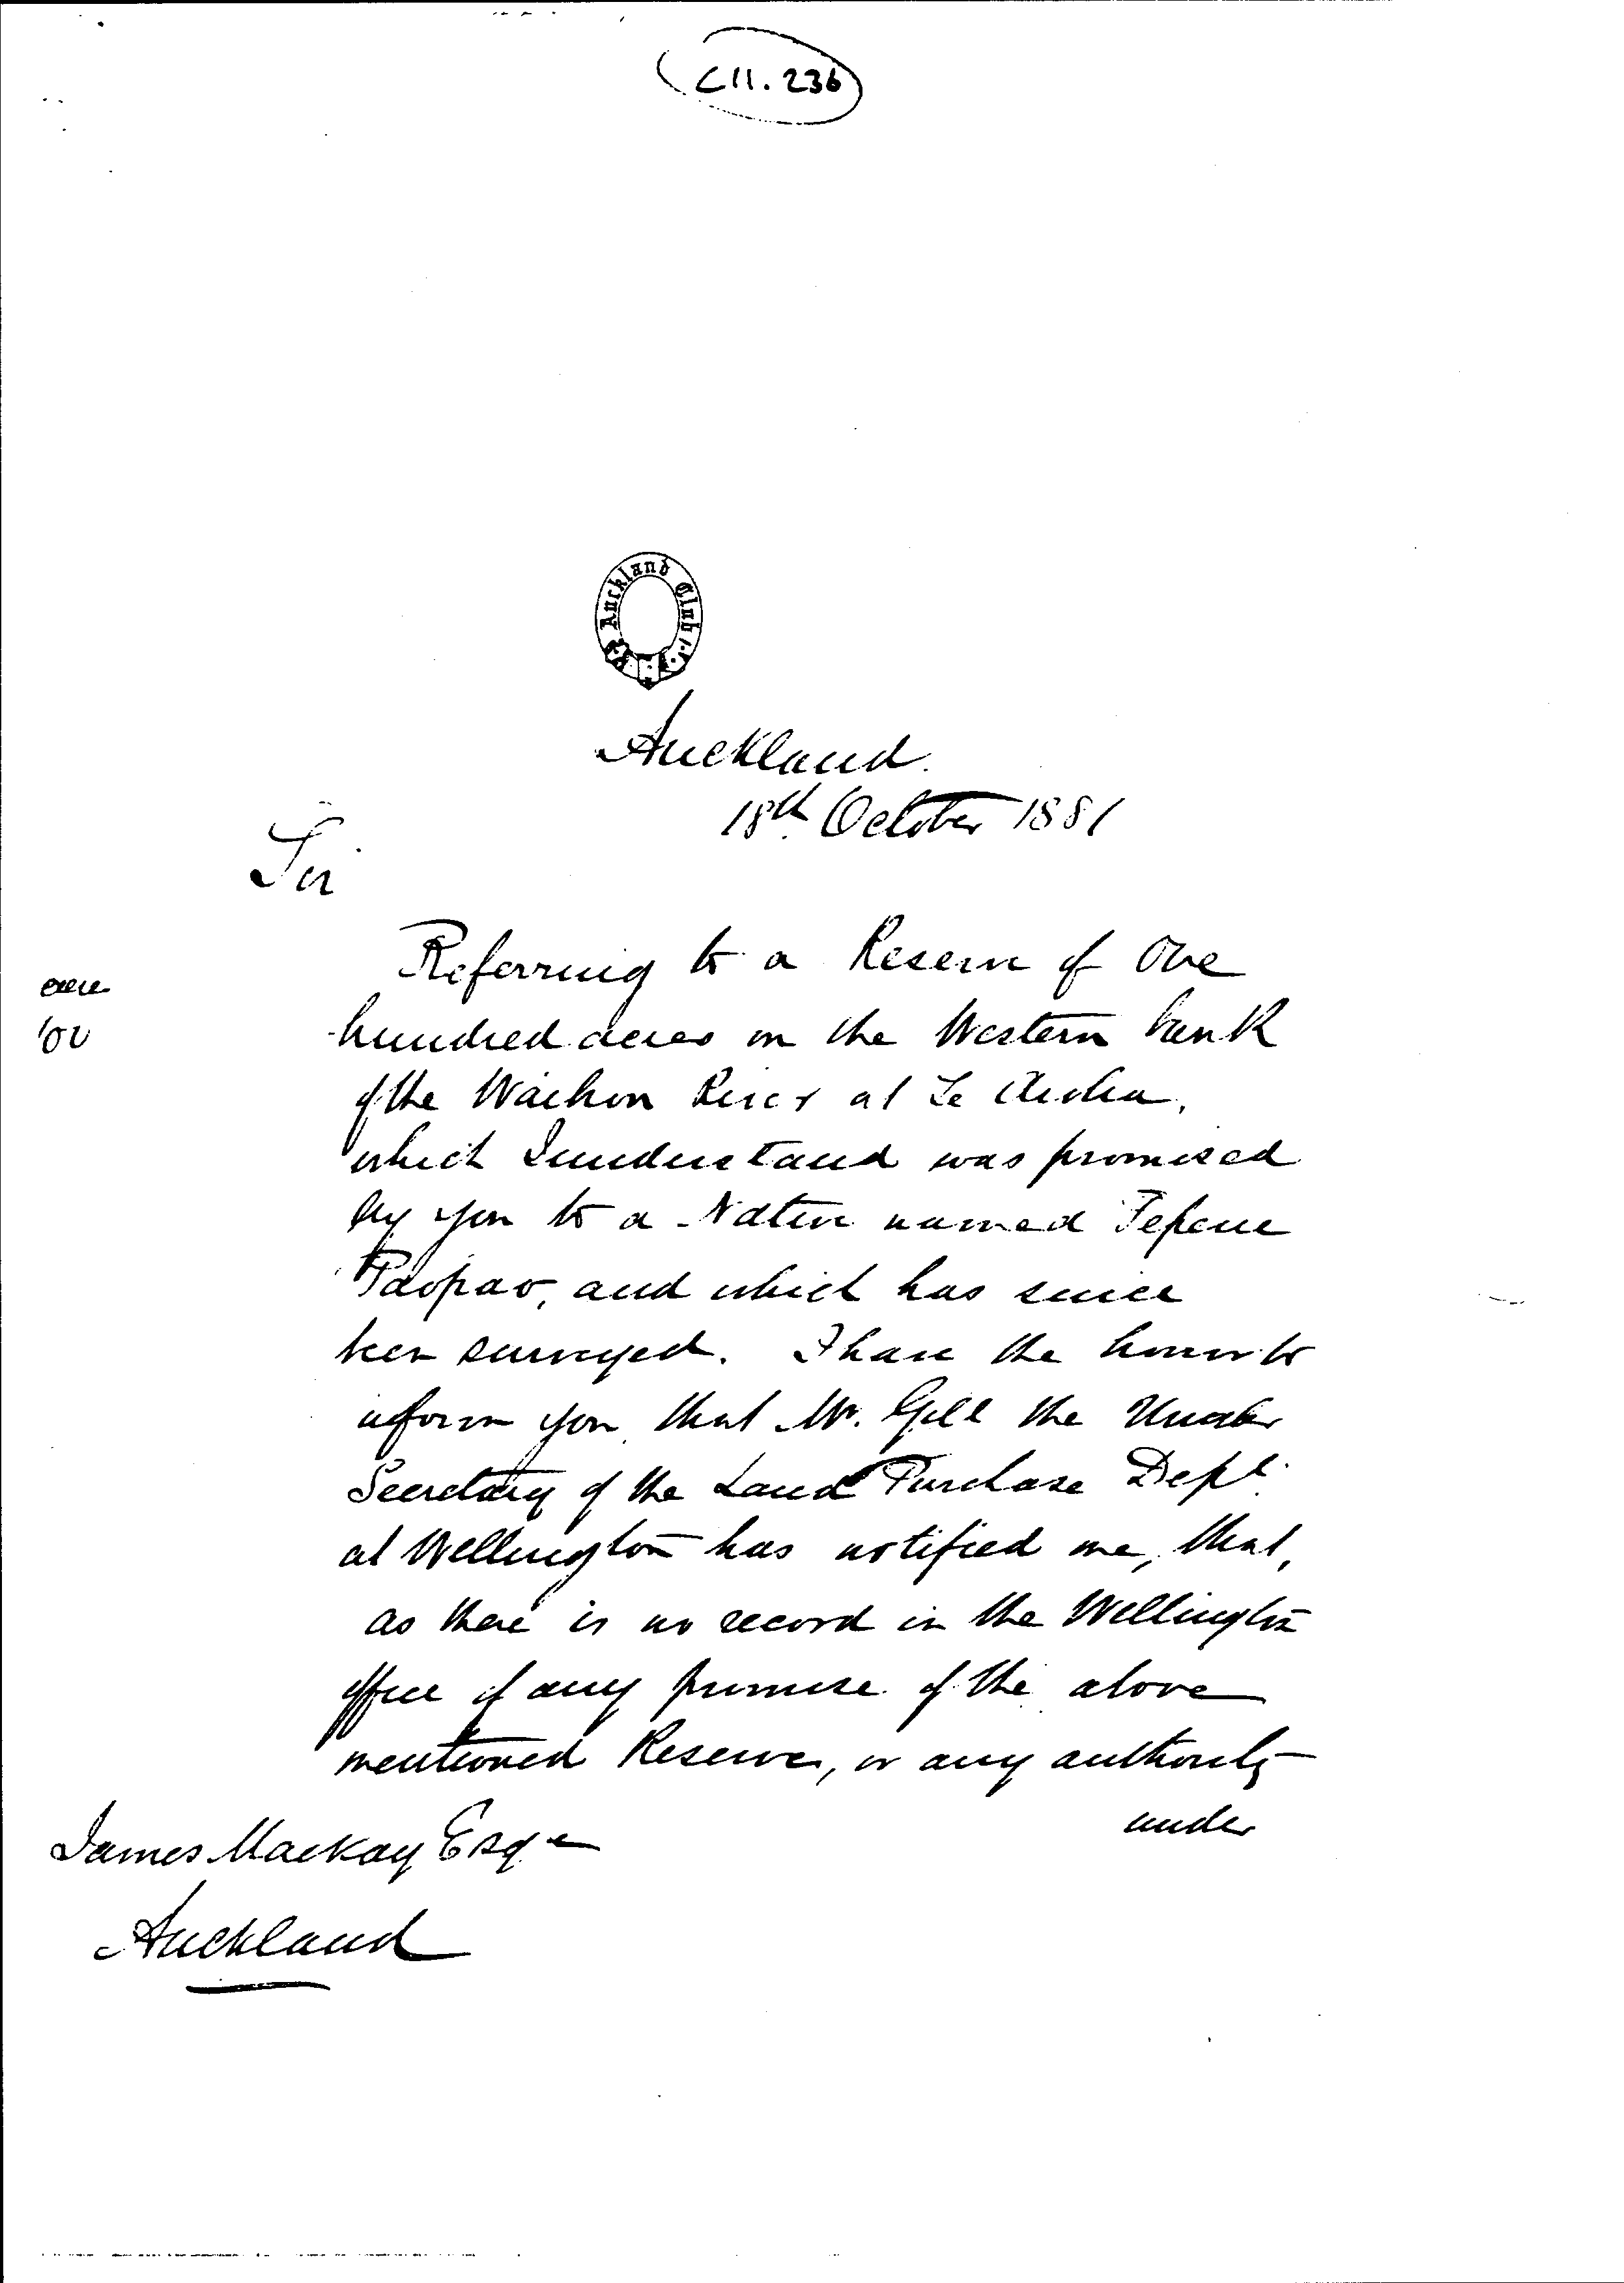 C11.236
Auckland Club
Auckland.
18th October 1881
Sir
Referring to a Reserve of One
100
hundred acres on the Western bank
of the Waihou River at Te Aroha,
which I understand was promised
by you to a Native named Tepene
Paopao, and which has since
been surveyed. I have the honor to
inform you that Mr. Gill the Under
Secretary of the Land Purchase Dept.
at Wellington has notified me, that,
as there is no record in the Wellington
office of any promise of the above
mentioned Reserve, or any authority
under
James Mackay Esqre
Auckland